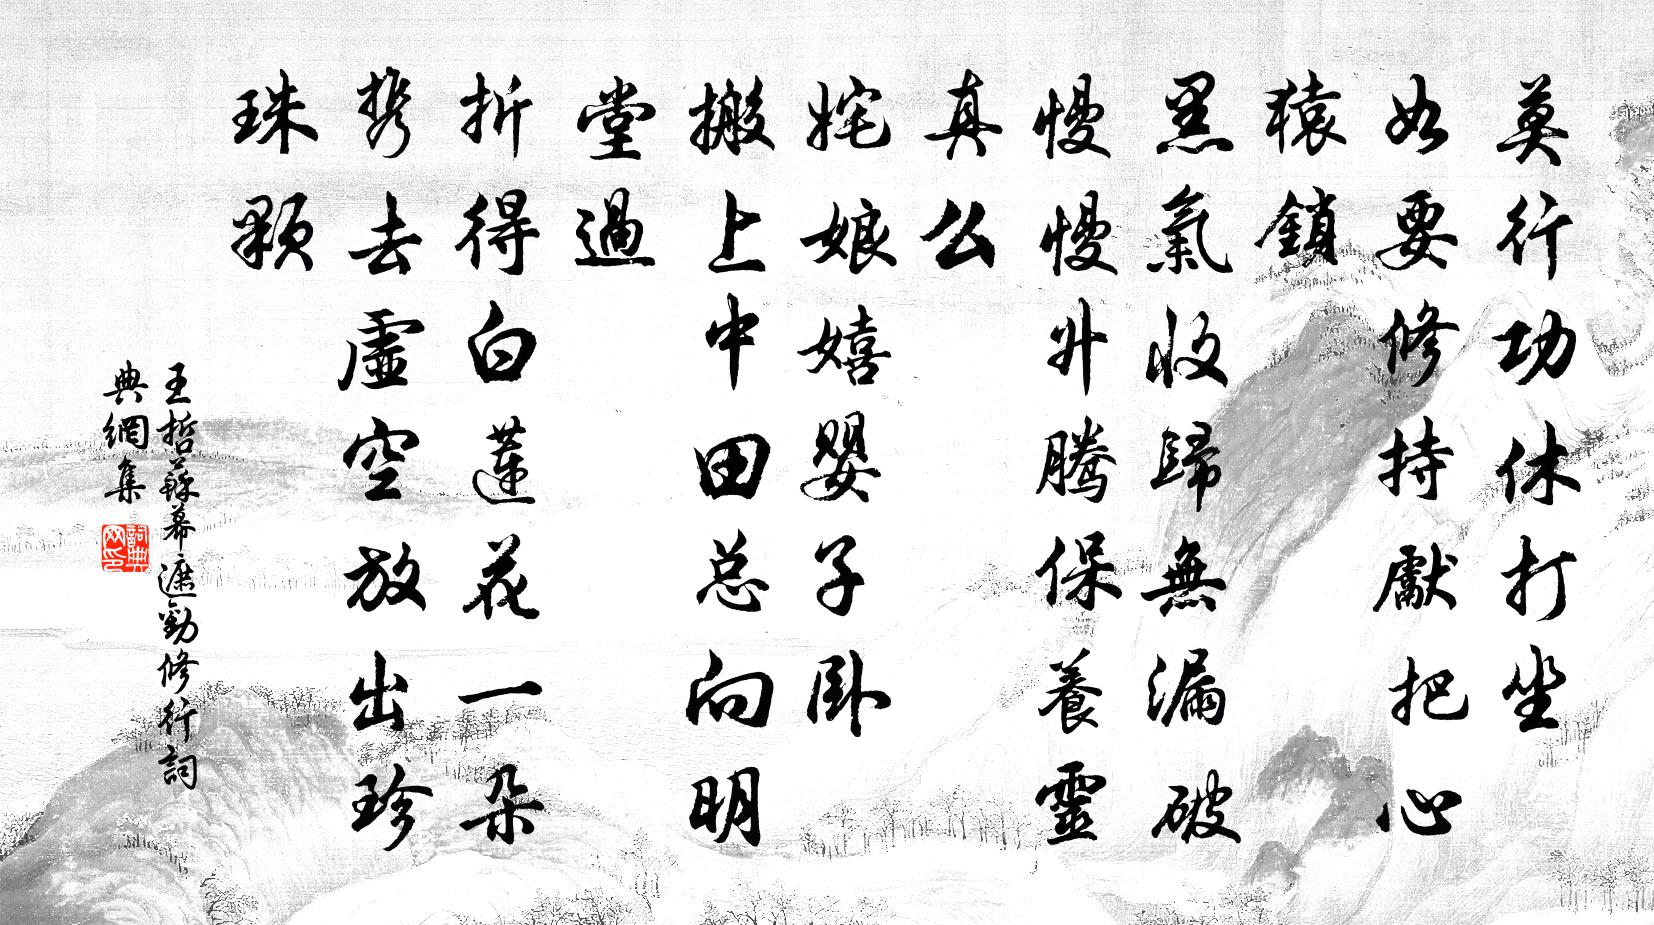 莫行功休打坐
如要修持獻把心
猿鎖
黑氣收歸無漏破
慢慢升騰保養靈
真么
姹娘嬉嬰子卧
搬上中田总向明
堂過
折得白蓮花一朵
携去虛空放出珍
珠顆
王哲蘇幕遮勸修行詞
典網集
詞典
网印